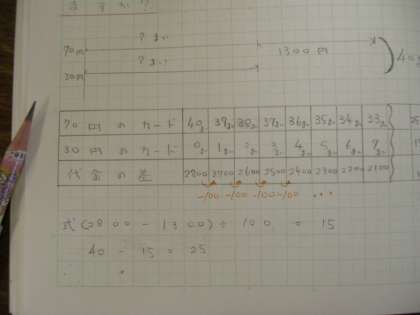 ? まい
70円
? まい
1300円
30円
40ま
70円のカード 40ま 39ま 38ま 37ま 36ま 35ま 34ま 33ま
30円のカード 0ま 1ま 2ま 3ま 4ま 5ま 6ま 7ま
代金の差 2800 2700 2600 2500 2400 2300 2200 2100
-100 -100 -100 -100 ...
式 (2800 - 1300) ÷ 100 = 15
40 - 15 = 25